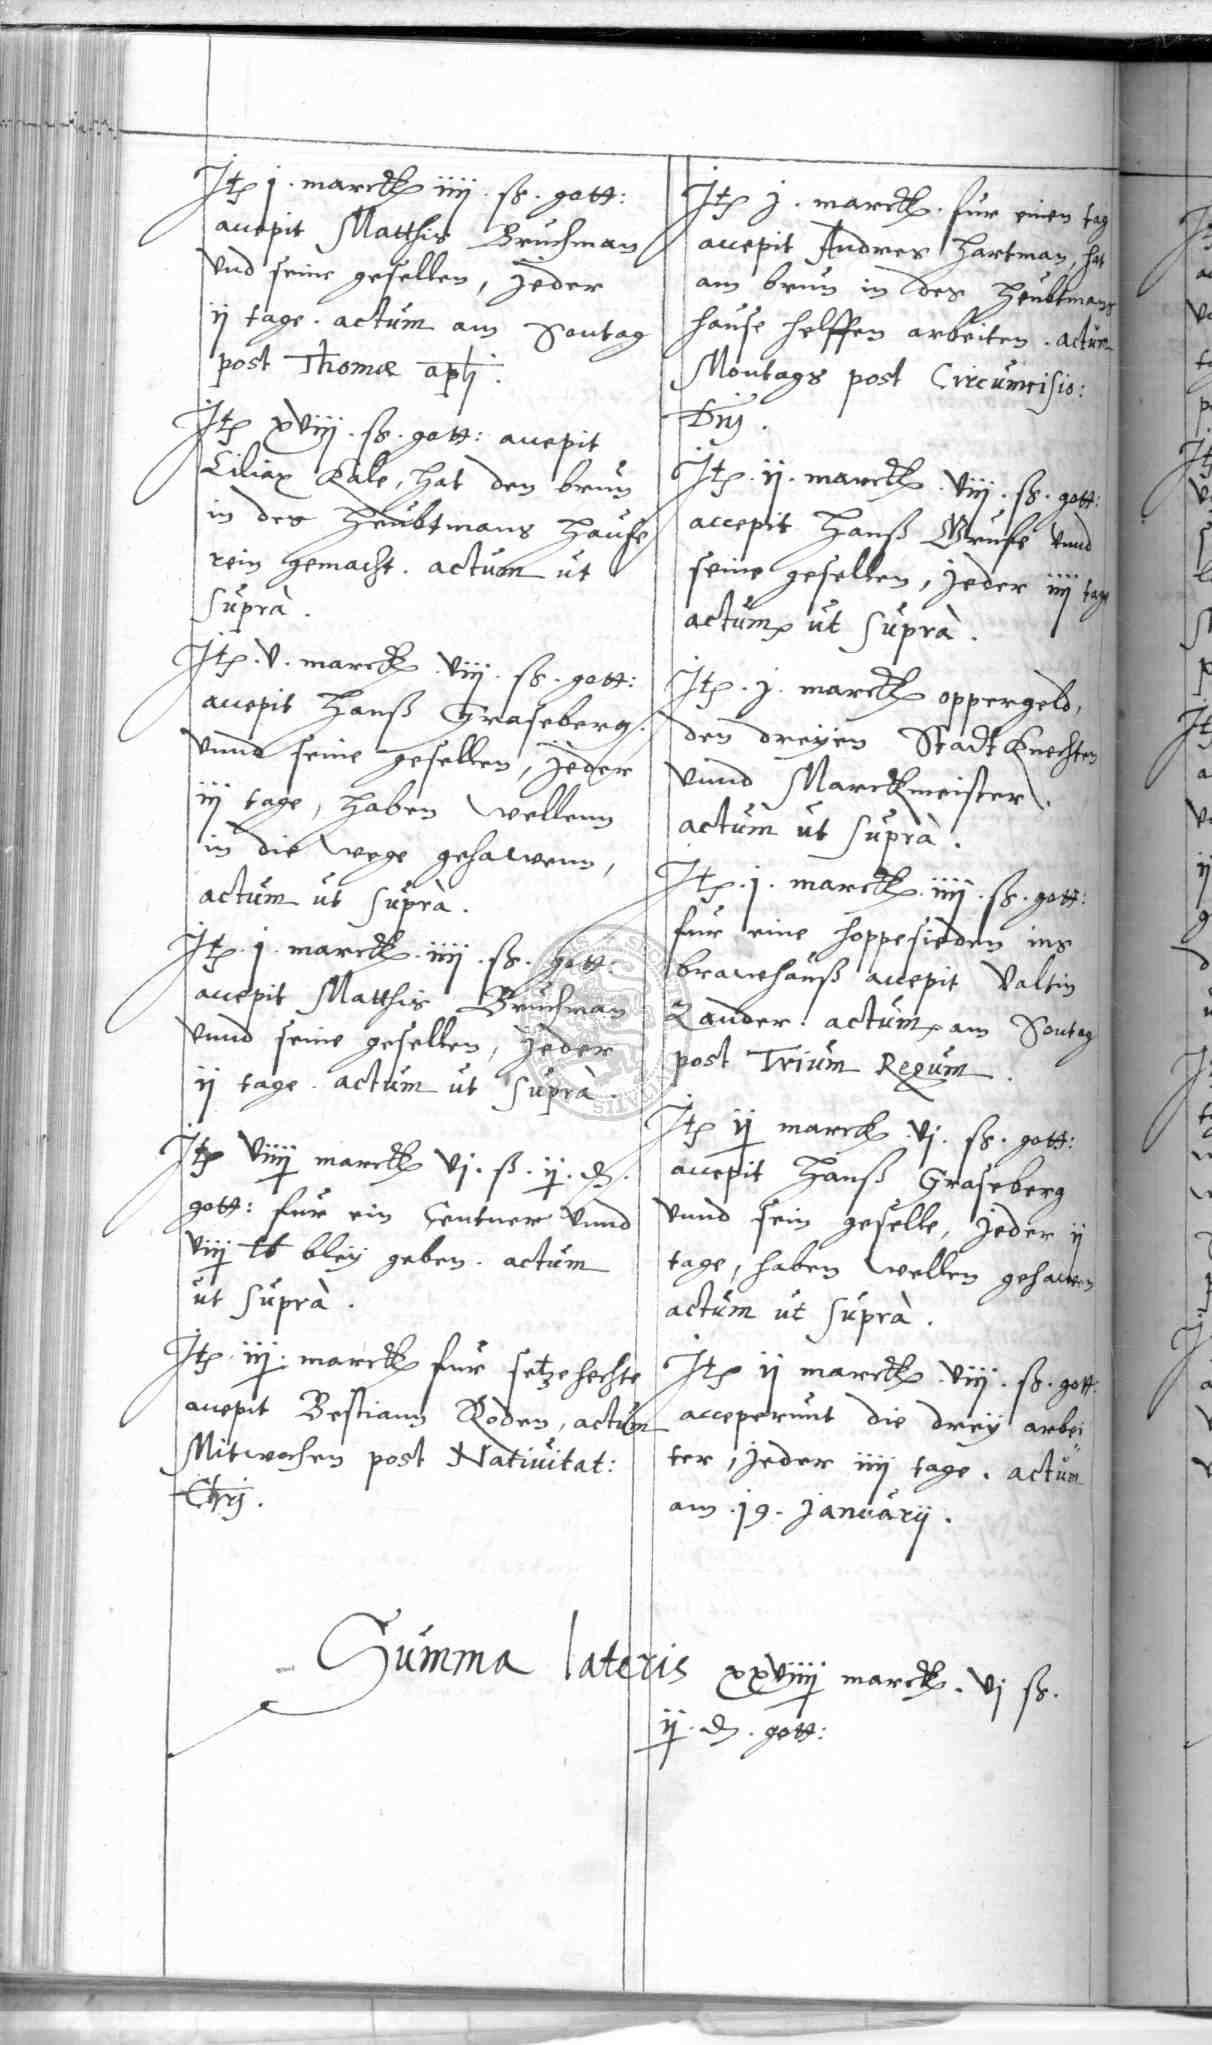 Itē j. marck iiij. ß. gott:
accepit Matthis Bruchman
vnd seine gesellen, jeder
ij tage. actum am Sontag
post Thomæ apli.
Itē xviij. ß. gott: accepit
Ciliax Kale, hat den brun
in des Heubtmans Hause
rein gemacht. actum ut
suprà.
Itē. v. marck viij. ß. gott:
accepit Hanß Graseberg
vnnd seine gesellen, jeder
iij tage, haben wellenn
in die wege gehawenn,
actum ut suprà.
Itē. j. marck. iiij. ß. gott:
accepit Matthis Bruchman
vnnd seine gesellen, jeder
ij tage. actum ut suprà.
Itē viiij marck vj. ß. ij. ₰.
gott: fur ein Centner vnnd
viij lb bley geben. actum
ut suprà.
Itē. iij. marck fur setzehechte
accepit Bestiann Roden, actum
Mitwochen post Nativitat:
Chrj.
Itē j. marck. fur einen tag
accepit Andres Hartman, hat
am brun in des Heubtmans
hause helffen arbeiten. actum
Montags post Circumcisio:
Dnj.
Itē. ij. marck. viij. ß. gott:
accepit Hanß Gruse vnnd
seine gesellen, jeder iiij tage
actum ut suprà.
Itē. j. marck oppergeld,
den dreyen Stadt Knechten
vnnd Marckmeister.
actum ut suprà.
Itē. j. marck. iiij. ß. gott:
fur eine hoppesieden ins
brawhauß accepit Valtin
Zander. actum am Sontag
post Trium Regum.
Itē ij marck vj. ß. gott:
accepit Hanß Graseberg
vnnd sein geselle, jeder ij
tage, haben wellen gehawen
actum ut suprà.
Itē ij marck. viij. ß. gott:
acceperunt die drey arbei
ter, jeder iiij tage. actum
am. 19. Januarij.
Summa lateris xxviiij marck. vj ß.
ij. ₰. gott: